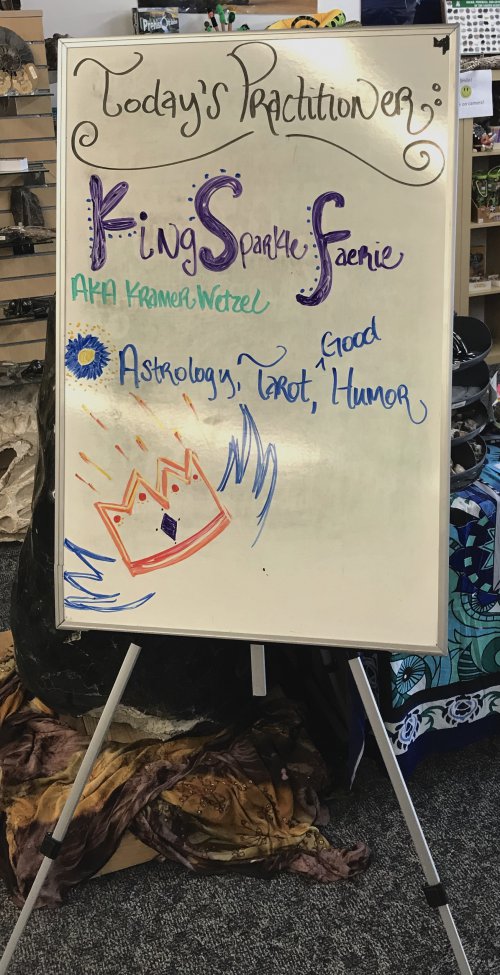 Today's Practitioner:
King Sparkle Faerie
AKA Kramer Wetzel
Good
Astrology, Tarot, ^ Humor